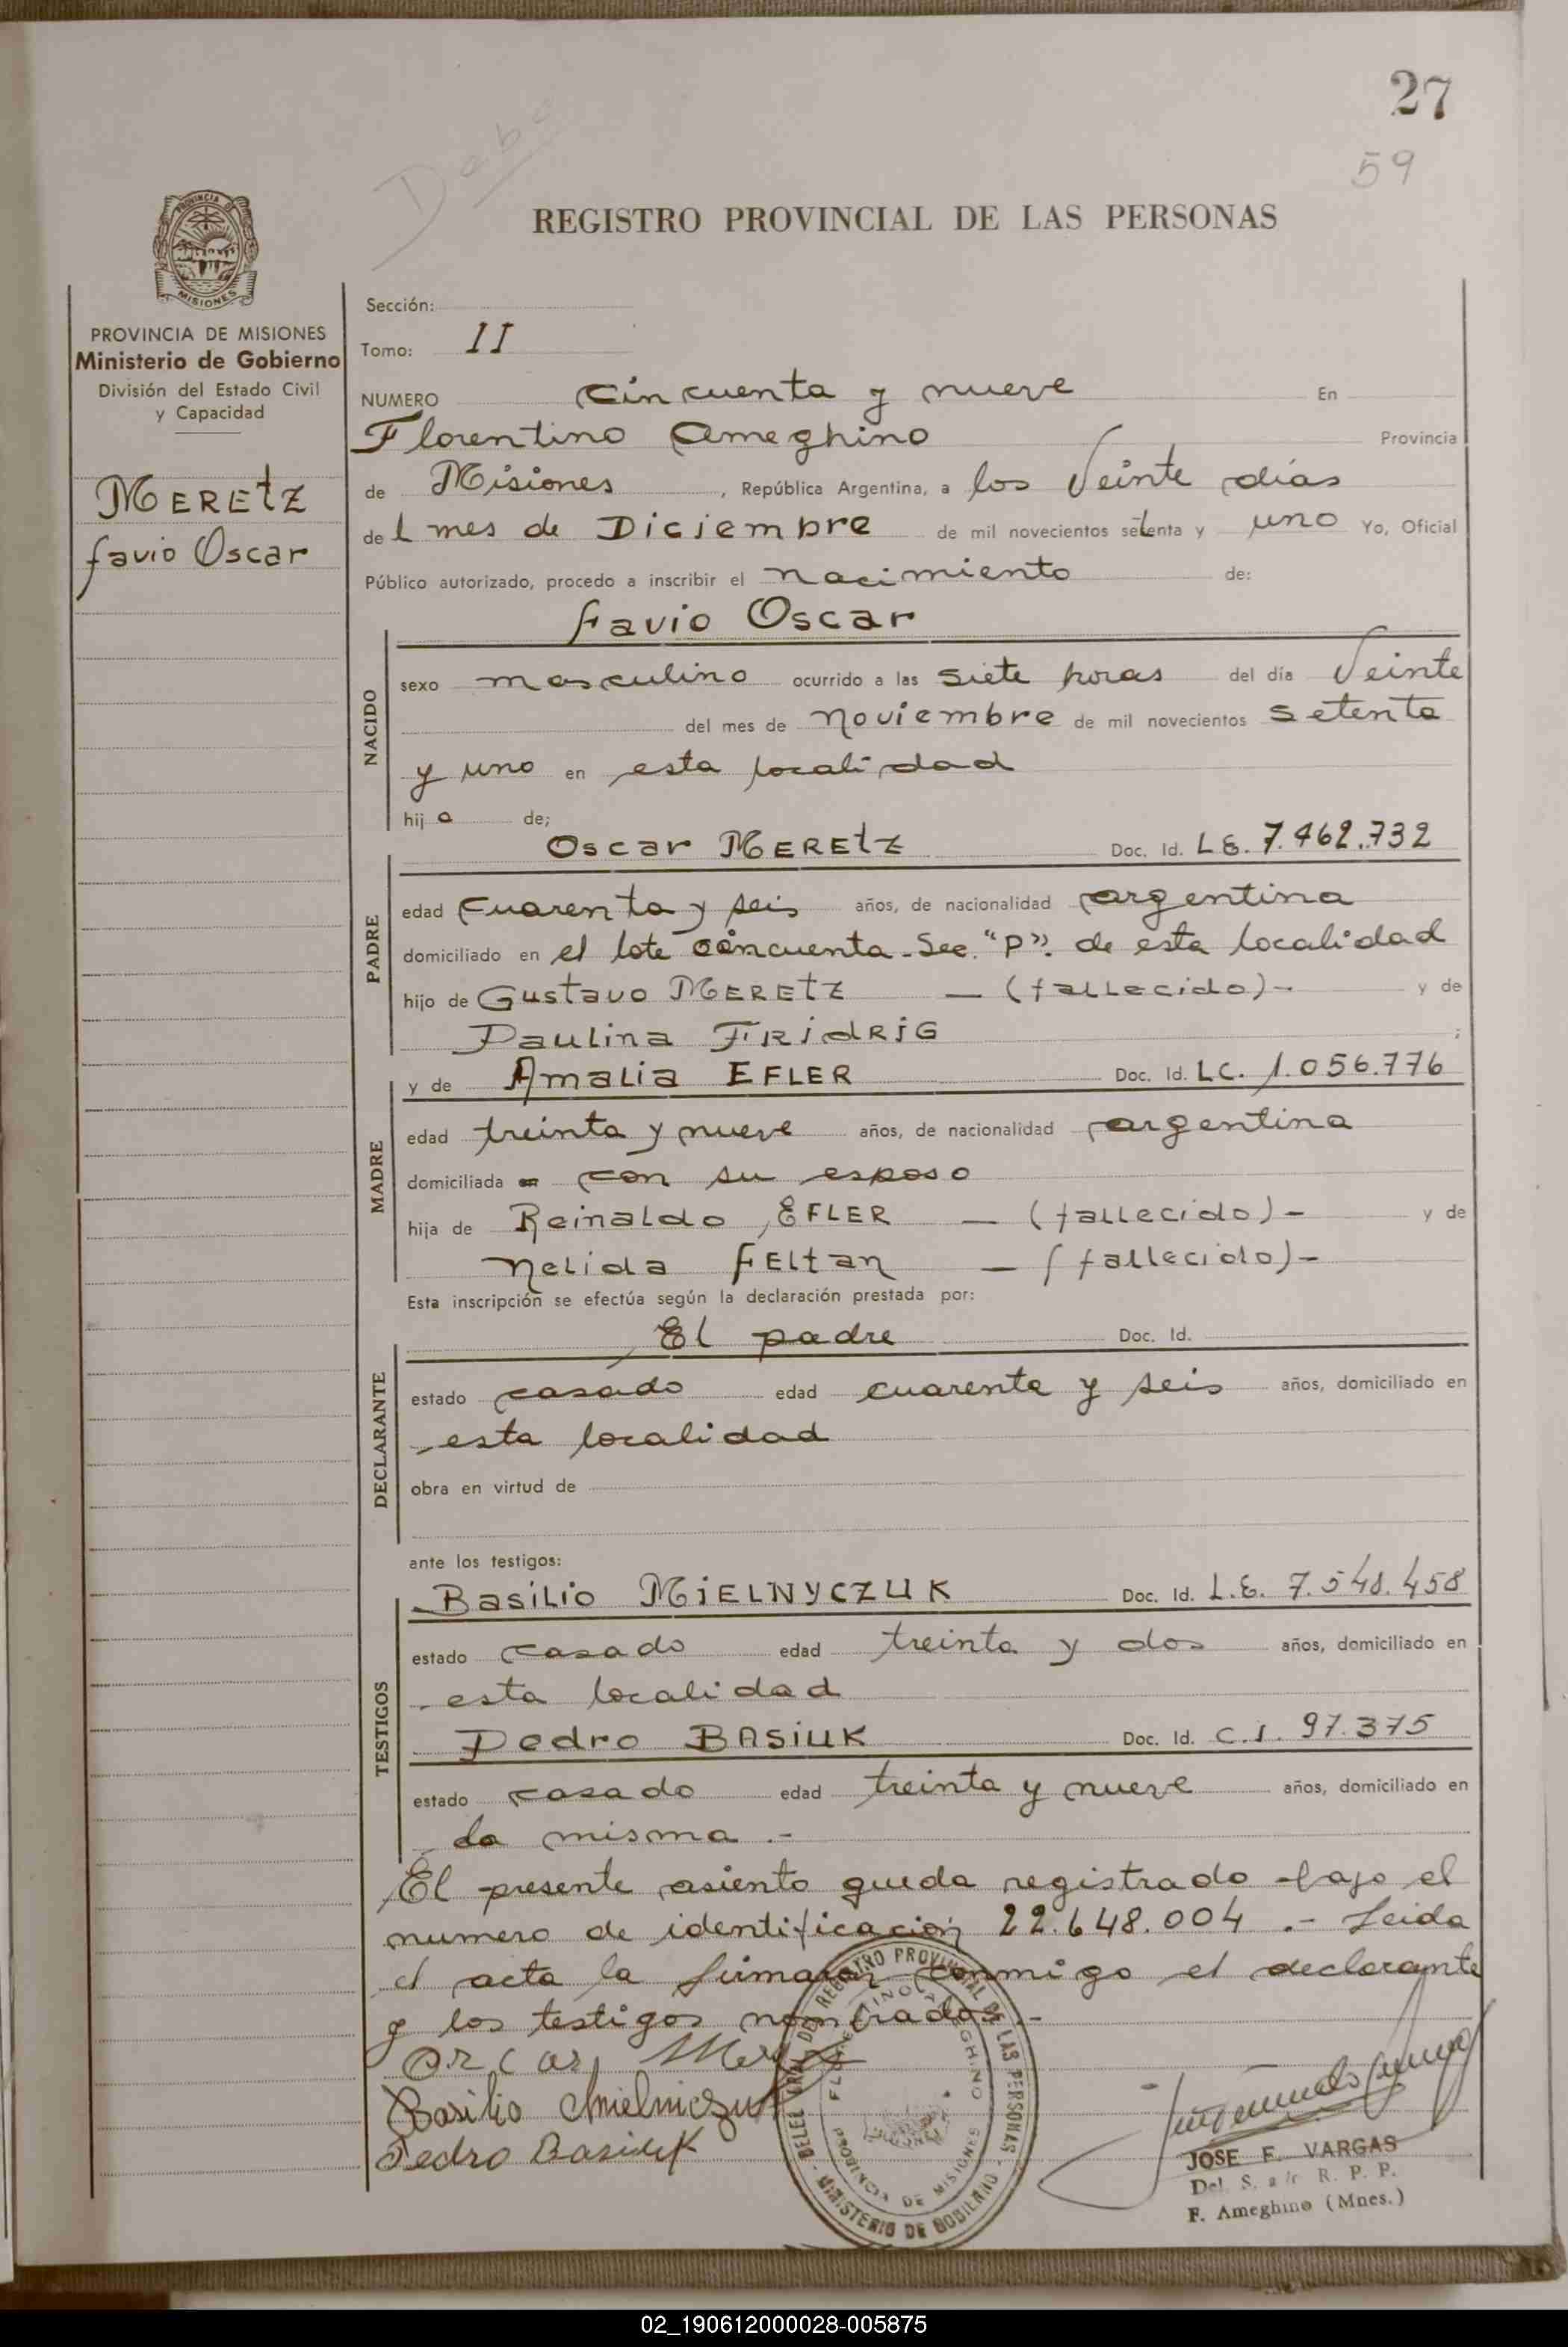 27
59
REGISTRO PROVINCIAL DE LAS PERSONAS
PROVINCIA DE MISIONES
Ministerio de Gobierno
División del Estado Civil
y Capacidad
MERETZ
Favio Oscar
Sección:
Tomo: II
NUMERO Cincuenta y nueve En
Florentino Ameghino Provincia
de Misiones, República Argentina, a los Veinte días
del mes de Diciembre de mil novecientos setenta y uno Yo, Oficial
Público autorizado, procedo a inscribir el nacimiento de:
Favio Oscar
NACIDO
sexo masculino ocurrido a las siete horas del día Veinte
del mes de Noviembre de mil novecientos setenta
y uno en esta localidad
hijo de;
Oscar MERETZ Doc. Id. L.E. 7.462.732
PADRE
edad cuarenta y seis años, de nacionalidad argentina
domiciliado en el lote cincuenta - Sec. "P". de esta localidad
hijo de Gustavo MERETZ — (fallecido) - y de
Paulina FRIDRIG ;
y de Amalia EFLER Doc. Id. LC. 1.056.776
MADRE
edad treinta y nueve años, de nacionalidad argentina
domiciliada con su esposo
hija de Reinaldo EFLER — (fallecido) - y de
Nelida FELTAN — (fallecido) -
Esta inscripción se efectúa según la declaración prestada por:
El padre Doc. Id.
DECLARANTE
estado casado edad cuarenta y seis años, domiciliado en
esta localidad
obra en virtud de
ante los testigos:
Basilio MIELNYCZUK Doc. Id. L.E. 7.548.458
TESTIGOS
estado casado edad treinta y dos años, domiciliado en
esta localidad
Pedro BASIUK Doc. Id. C.I. 97.375
estado casado edad treinta y nueve años, domiciliado en
la misma .-
El presente asiento queda registrado bajo el
numero de identificación 22.648.004 .- Leida
el acta la firman conmigo el declarante
y los testigos nombrados .-
Oscar
Basilio Mielniczuk
Pedro Basiuk
REGISTRO PROVINCIAL DE LAS PERSONAS
MINISTERIO DE GOBIERNO
PROVINCIA DE MISIONES
JOSE F. VARGAS
Del. S. R. P. P.
F. Ameghino (Mnes.)
02_190612000028-005875